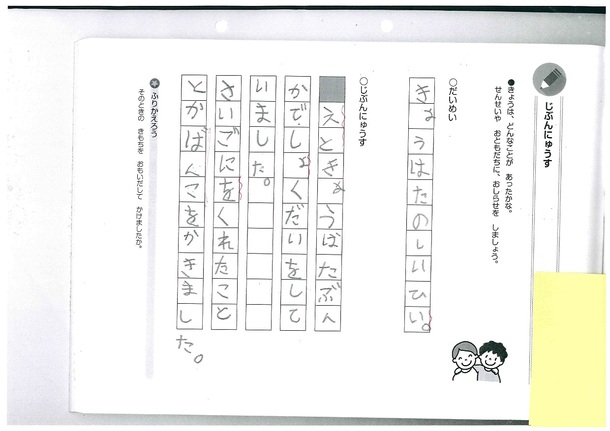 じぶんにゅうす
●きょうは、どんなことが あったかな。
せんせいや おともだちに、おしらせを しましょう。
○だいめい
きょうはたのしいひい。
○じぶんにゅうす
えときょうばたぶん
かでしょくだいをして
いました。
さいごにをくれたこと
とかばんこをかきました。
ふりかえろう
そのときの きもちを おもいだして かけましたか。